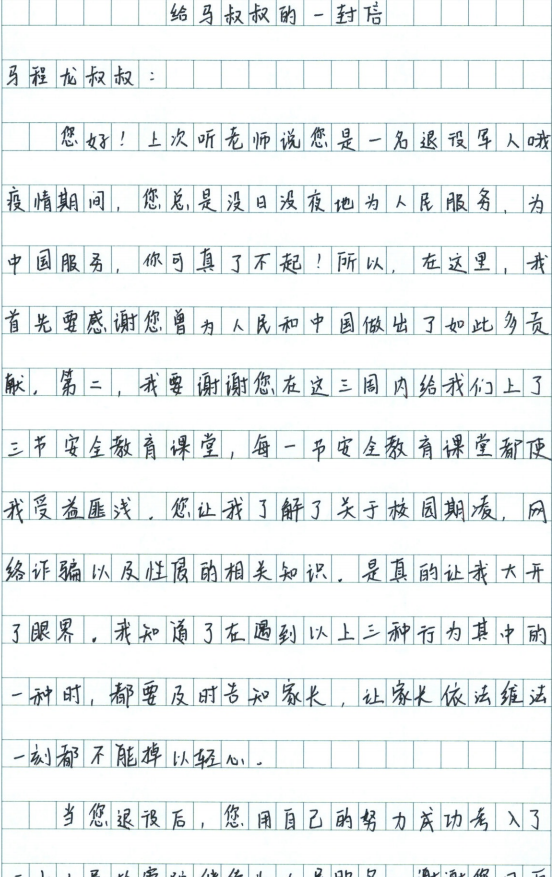 给马叔叔的一封信
马程龙叔叔:
您好!上次听老师说您是一名退役军人哦
疫情期间,您总是没日没夜地为人民服务,为
中国服务,你可真了不起!所以,在这里,我
首先要感谢您曾为人民和中国做出了如此多贡
献。第二,我要谢谢您在这三周内给我们上了
三节安全教育课堂,每一节安全教育课堂都使
我受益匪浅。您让我了解了关于校园期凌,网
络诈骗以及性侵的相关知识。是真的让我大开
了眼界。我知道了在遇到以上三种行为其中的
一种时,都要及时告知家长,让家长依法维法
一刻都不能掉以轻心。
当您退役后,您用自己的努力成功考入了